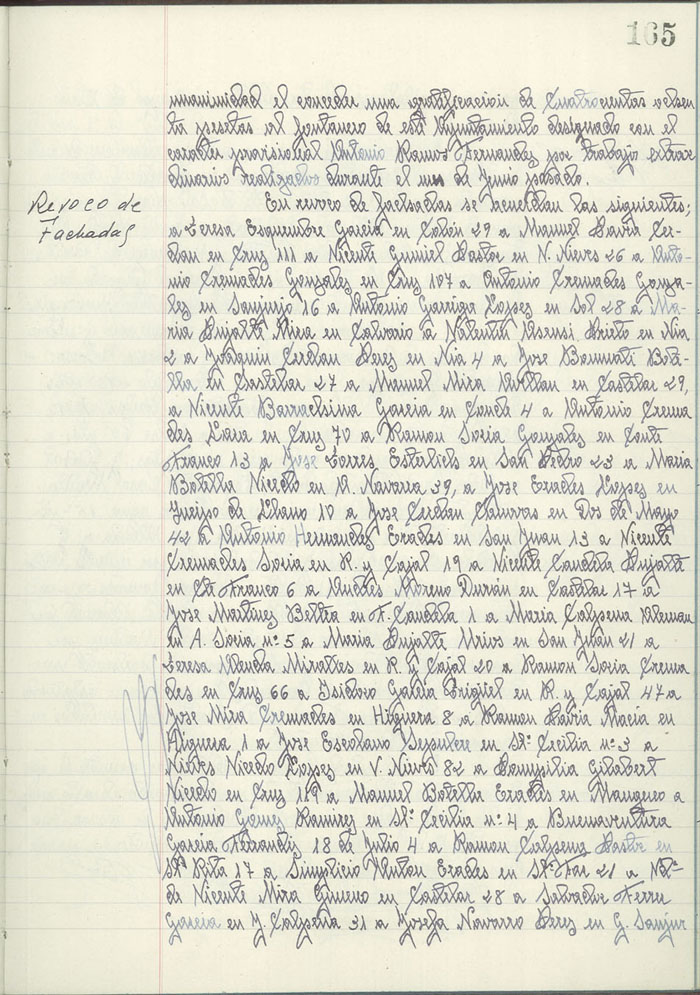 165
unanimidad el conceder una gratificacion de cuatrocientas ochen
ta pesetas al fontanero de este Ayuntamiento designado con el
caracter provisional Antonio Ramos Fernandez por trabajo extraor
dinarios realizados durante el mes de Junio pasado.
Revoco de
Fachadas
En revoco de fachadas se acuerdan las siguientes;
a Teresa Esquembre Garcia en Colón 29 a Manuel Pavia Cer-
dan en Cruz 111 a Vicente Gumiel Pastor en N. Nieves 26 a Anto-
nio Cremades Gonzalez en Cruz 107 a Antonio Cremades Gonza-
lez en Sanjurjo 16 a Antonio Garriga Lopez en Sol 28 a Ma-
ria Pujalte Mira en Calvario a Valentin Asensi Prieto en Nia
2 a Joaquin Cerdan Perez en Nia 4 a Jose Bonmati Bote-
lla en Castelar 27 a Manuel Mira en Castelar 29,
a Vicente Barrachina Garcia en Conde 4 a Antonio Crema
des en Cruz 70 a Ramon Soria Gonzalez en Conde
Franco 13 a Jose Torres Esterlich en San Pedro 23 a Maria
Botella Nicedo en N. Navarra 39, a Jose Erades Lopez en
Queipo de Llano 10 a Jose Cerdan en Dos de Mayo
42 a Antonio Hernandez Erades en San Juan 13 a Vicente
Cremades Soria en R. y Cajal 19 a Vicente Candela Pujalte
en Franco 6 a Andres Moreno Durán en Castelar 17 a
Jose Martinez Beltra en F. Candela 1 a Maria Calpena Aleman
en A. Soria nº 5 a Maria Pujalte en San Juan 21 a
Teresa Miralles en R. y Cajal 20 a Ramon Soria Crema
des en Cruz 66 a Isidoro Garcia en R. y Cajal 47 a
Jose Mira Cremades en Higuera 8 a Ramon Pavia Macia en
Higuera 1 a Jose Escolano Sepulcre en Stª Cecilia nº 3 a
Nieves Nicedo Lopez en V. Nieves 82 a Pompilia Gilabert
Nicedo en Cruz 119 a Manuel Botella Erades en a
Antonio Gomez Ramirez en Stª Cecilia nº 4 a Buenaventura
Garcia Ferrandiz 18 de Julio 4 a Ramon Calpena Pastor en
Stª Rita 17 a Simplicio Anton Erades en 21 a
de Vicente Mira Gimeno en Castelar 28 a Salvador Ferre
Garcia en J. Calpena 31 a Josefa Navarro Perez en G. Sanjur